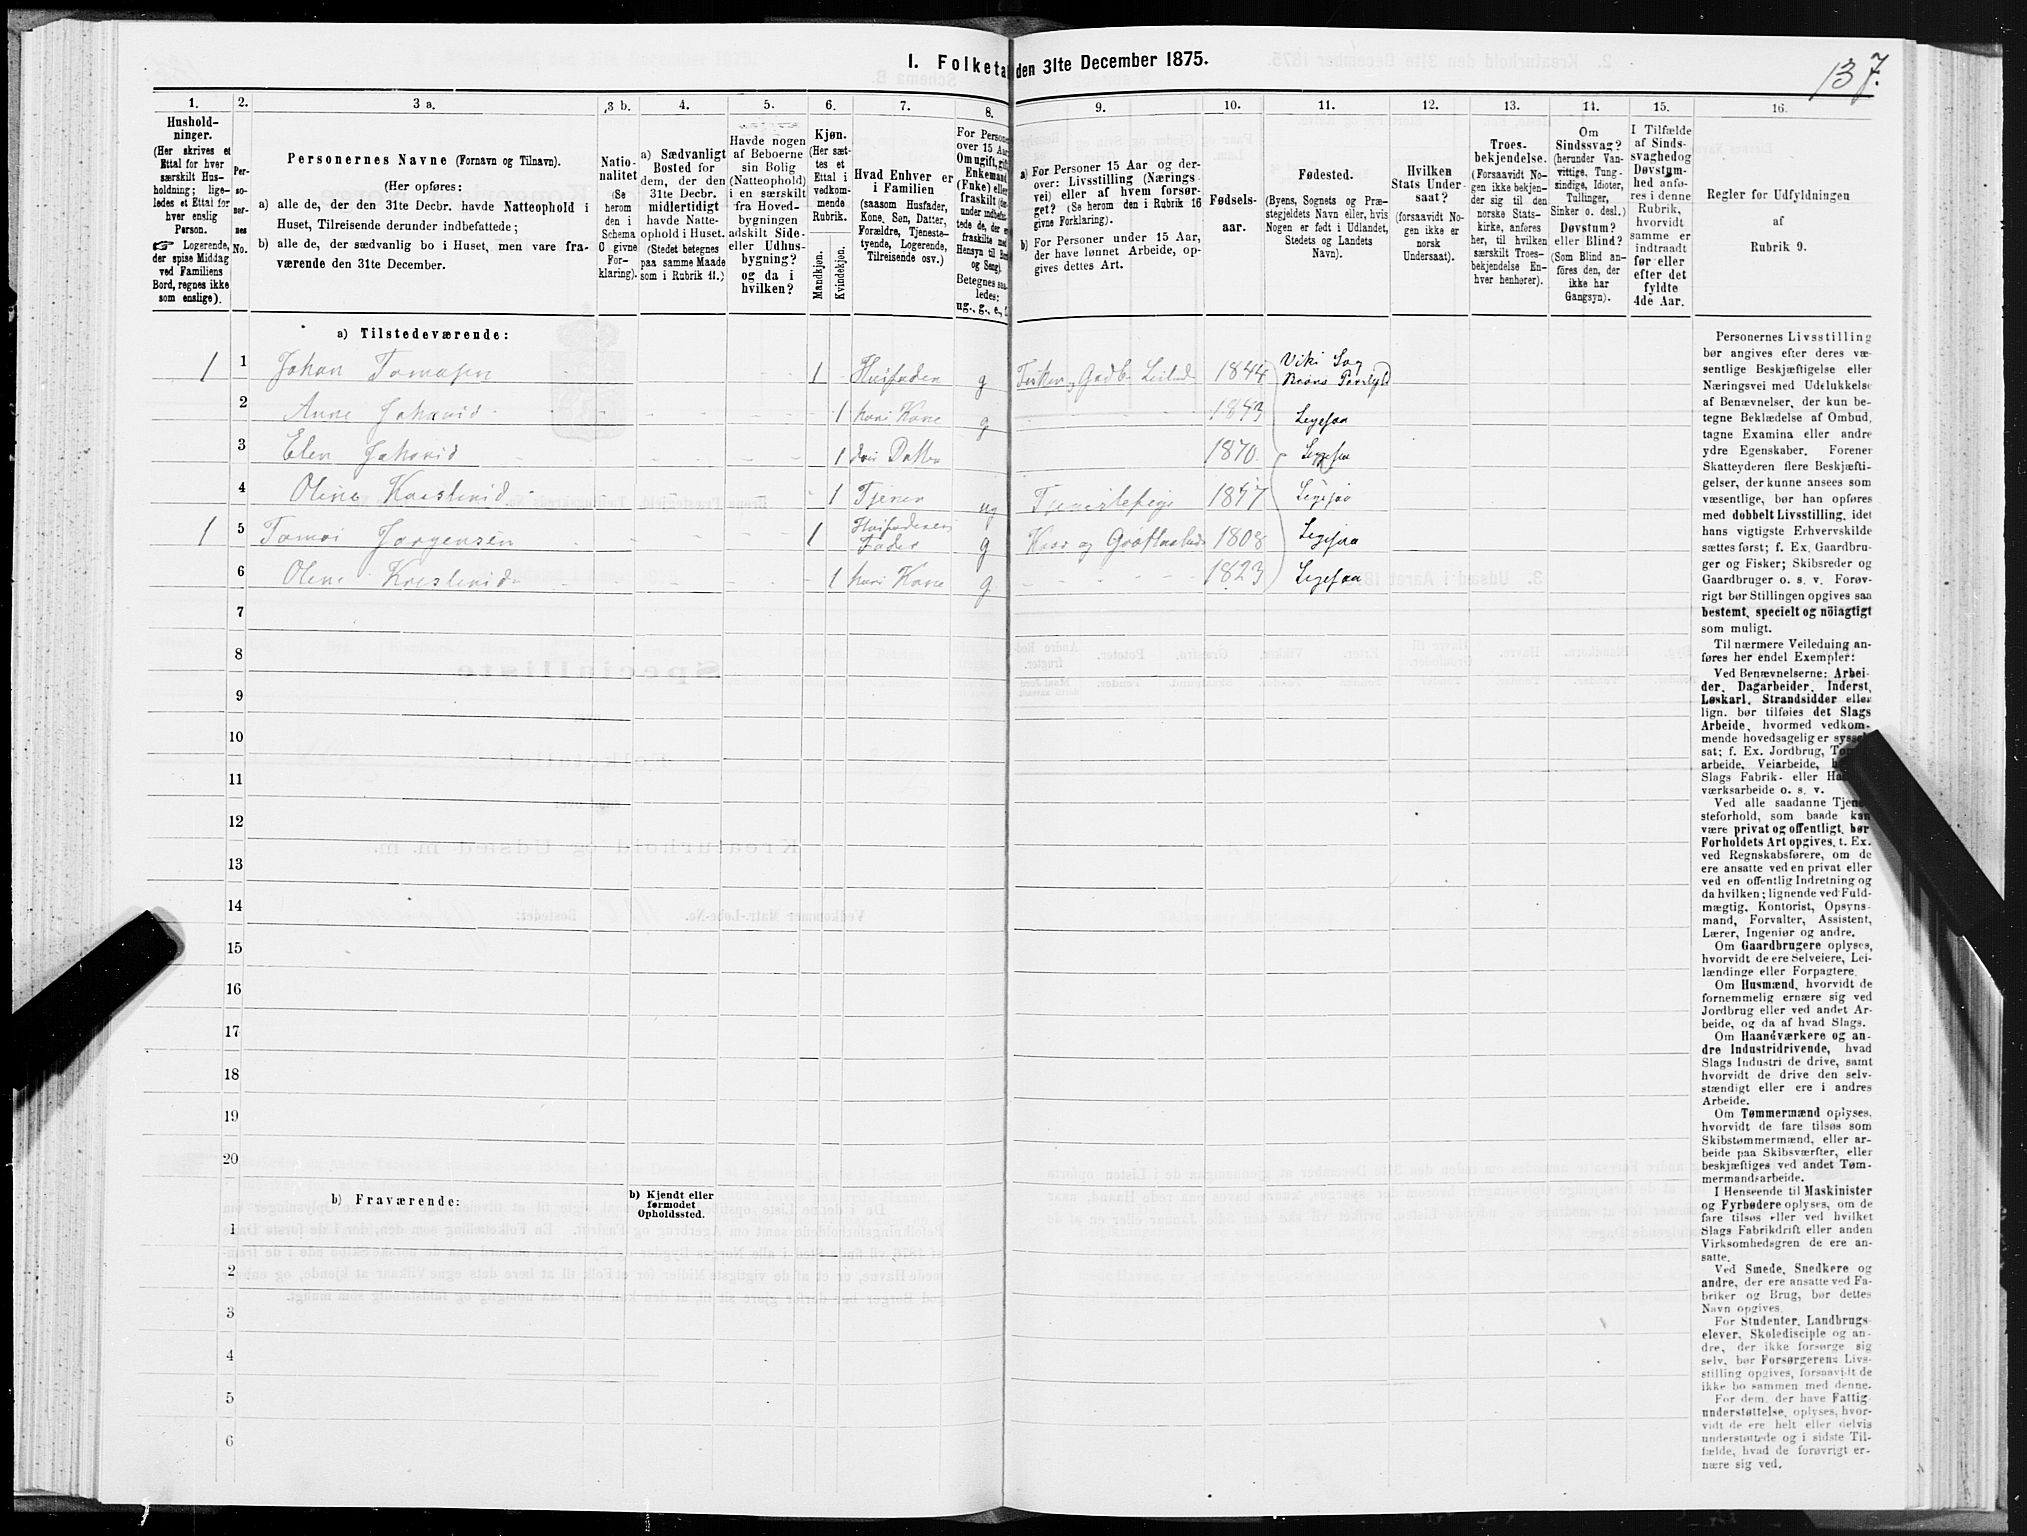 137.
I. Folketal den 31te December 1875.
1. 2. 3 a. 3 b. 4. 5. 6. 7. 8. 9. 10. 11. 12. 13. 14. 15. 16.
Hushold-
ninger.
(Her skrives et
Ettal for hver
særskilt Hus-
holdning; lige-
ledes et Ettal for
hver enslig
Person.
☞ Logerende,
der spise Middag
ved Familiens
Bord, regnes ikke
som enslige).
Per-
so-
ner-
nes
No.
Personernes Navne (Fornavn og Tilnavn).
(Her opføres:
a) alle de, der den 31te Decbr. havde Natteophold i
Huset, Tilreisende derunder indbefattede;
b) alle de, der sædvanlig bo i Huset, men vare fra-
værende den 31te December.
Natio-
nalitet
(Se
herom
den i
Schema
C givne
For-
klaring).
a) Sædvanligt
Bosted for
dem, der den
31te Decbr.
midlertidigt
havde Natte-
ophold i Huset.
(Stedet betegnes
paa samme Maade
som i Rubrik 11.)
Havde nogen
af Beboerne
sin Bolig
(Natteophold)
i en særskilt
fra Hoved-
bygningen
adskilt Side-
eller Udhus-
bygning?
og da i
hvilken?
Kjøn.
(Her sæt-
tes et
Ettal i
vedkom-
mende
Rubrik.
Mandkjøn.
Kvindekjøn.
Hvad Enhver er
i Familien
(saasom Husfader,
Kone, Søn, Datter,
Forældre, Tjeneste-
tyende, Logerende,
Tilreisende osv.)
For Persone
over 15 Aar
Om ugift, gift
Enkemand
(Enke) eller
fraskilt (der-
under indbefat-
tede de, der e
fraskilte med
Hensyn til Bor
og Seng).
Betegnes saa-
ledes:
ug., g., e., f.
a) For Personer 15 Aar og der-
over: Livsstilling (Nærings-
vei) eller af hvem forsør-
get? (Se herom de i Rubrik 16
givne Forklaring).
b) For Personer under 15 Aar,
der have lønnet Arbeide, op-
gives dettes Art.
Fødsels-
aar.
Fødested.
(Byens, Sognets og Præ-
stegjeldets Navn eller, hvis
Nogen er født i Udlandet,
Stedets og Landets
Navn).
Hvilken
Stats Under-
saat?
(forsaavidt No-
gen ikke er
norsk
Undersaat).
Troes-
bekjendelse.
(Forsaavidt No-
gen ikke bekjen-
der sig til den
norske Stats-
kirke, anføres
her, til hvilken
særskilt Troes-
bekjendelse En-
hver henhører).
Om
Sindssvag?
(herunder Van-
vittige, Tung-
sindige, Idioter,
Tullinger,
Sinker o. desl.)
Døvstum?
eller Blind?
(Som Blind an-
føres den, der
ikke har
Gangsyn).
I Tilfælde
af Sinds-
svaghed og
Døvstum-
hed anfø-
res i denne
Rubrik,
hvorvidt
samme er
indtraadt
før eller
efter det
fyldte
4de Aar.
Regler for Udfyldningen
af
Rubrik 9.
a) Tilstedeværende:
1 1 Johan Tomasen 1 Husfader g Fisker, Gadb. 1844 Viki Sog
2 Anne 1 hans Kone g 1843 Legesaa
3 Elen 1 Datter 1870 Legesaa
4 Oline 1 Tjener ug 1847 Legesaa
1 5 Tomas Jørgensen 1 Husfaderens Fader g 1808 Legesaa
6 Oline 1 hans Kone g 1823 Legesaa
7
8
9
10
11
12
13
14
15
16
17
18
19
20
b) Fraværende:
b) Kjendt eller
formodet
Opholdssted.
1
2
3
4
5
6
Personernes Livsstilling
bør angives efter deres væ-
sentlige Beskjæftigelse eller
Næringsvei med Udelukkelse
af Benævnelser, der kun be-
tegne Beklædelse af Ombud,
tagne Examina eller andre
ydre Egenskaber. Forener
Skatteyderen flere Beskjæfti-
gelser, der kunne ansees som
væsentlige, bør han opføres
med dobbelt Livsstilling, idet
hans vigtigste Erhvervskilde
sættes først; f. Ex. Gaardbru-
ger og Fisker; Skibsreder og
Gaardbruger o. s. v. Forøv-
rigt bør Stillingen opgives saa
bestemt, specielt og nöiagtigt
som muligt.
Til nærmere Veiledning an-
føres her endel Exempler:
Ved Benævnelserne: Arbei-
der, Dagarbeider, Inderst,
Løskarl, Strandsidder eller
lign. bør tilføies det Slags
Arbeide, hvormed vedkom-
mende hovedsagelig er syssel-
sat; f. Ex. Jordbrug,
arbeide, Veiarbeide,
Slags Fabrik- eller
værksarbeide o. s. v.
Ved alle saadanne Tjene-
steforhold, som baade kan
være privat og offentligt, bør
Forholdets Art opgives, t. Ex.
ved Regnskabsførere, om de
ere ansatte ved en privat eller
ved en offentlig Indretning og
da hvilken; lignende ved Fuld-
mægtig, Kontorist, Opsyns-
mand, Forvalter, Assistent,
Lærer, Ingeniør og andre.
Om Gaardbrugere oplyses,
hvorvidt de ere Selveiere, Lei-
lændinge eller Forpagtere.
Om Husmænd, hvorvidt de
fornemmelig ernære sig ved
Jordbrug eller ved andet Ar-
beide, og da af hvad Slags.
Om Haandværkere og an-
dre Industridrivende, hvad
Slags Industri de drive, samt
hvorvidt de drive den selv-
stændigt eller ere i andres
Arbeide.
Om Tømmermænd oplyses,
hvorvidt de fare tilsøs som
Skibstømmermænd, eller ar-
beide paa Skibsværfter, eller
beskjæftiges ved andet Tøm-
mermandsarbeide.
I Henseende til Maskinister
og Fyrbødere oplyses, om de
fare tilsøs eller ved hvilket
Slags Fabrikdrift eller anden
Virksomhedsgren de ere an-
satte.
Ved Smede, Snedkere og
andre, der ere ansatte ved Fa-
briker og Brug, bør dettes
Navn opgives.
For Studenter, Landbrugs-
elever, Skoledisciple og an-
dre, der ikke forsørge sig
selv, bør Forsørgerens Livs-
stilling opgives, forsaavidt de
ikke bo sammen med denne.
For dem, der have Fattig-
understøttelse, oplyses, hvor-
vidt de ere helt eller delvis
understøttede og i sidste Til-
fælde, hvad de forøvrigt er-
nære sig ved.